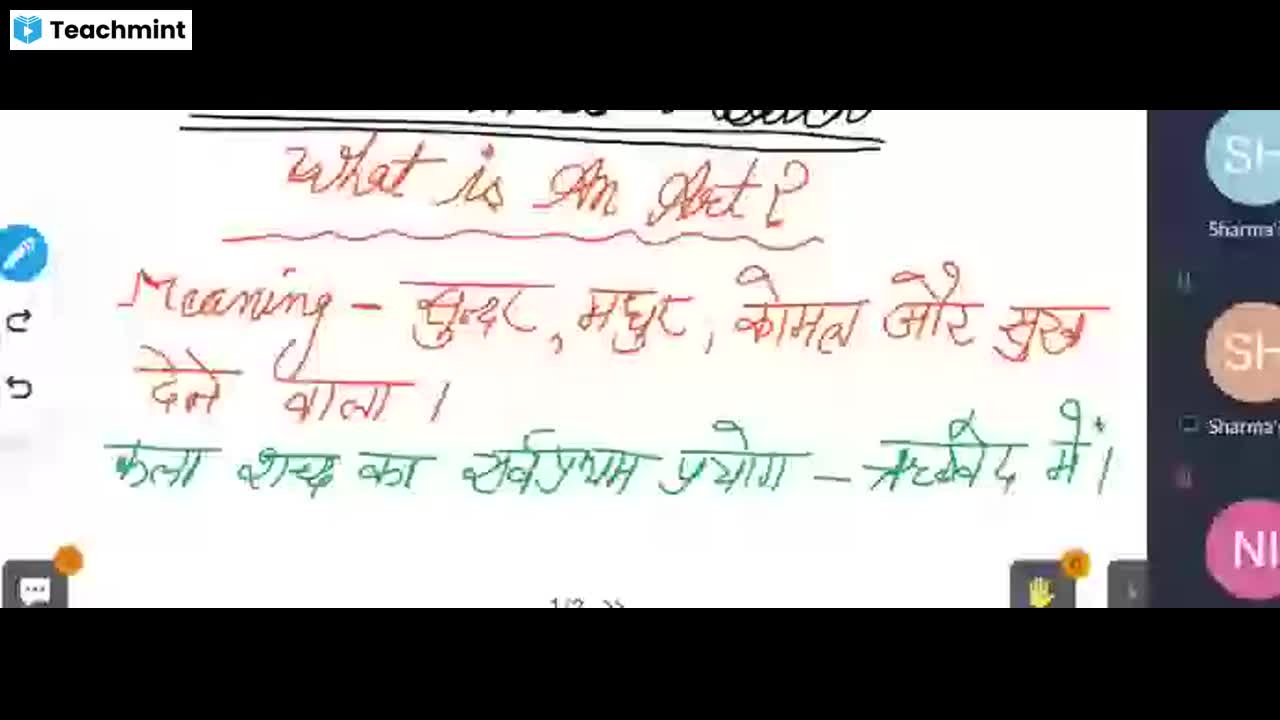 Teachmint
What is An Art?
Meaning - सुन्दर, मधुर, कोमल और सुख
देने वाला।
कला शब्द का सर्वप्रथम प्रयोग - ऋग्वेद में।
SH
Sharma's
SH
Sharma's
NI